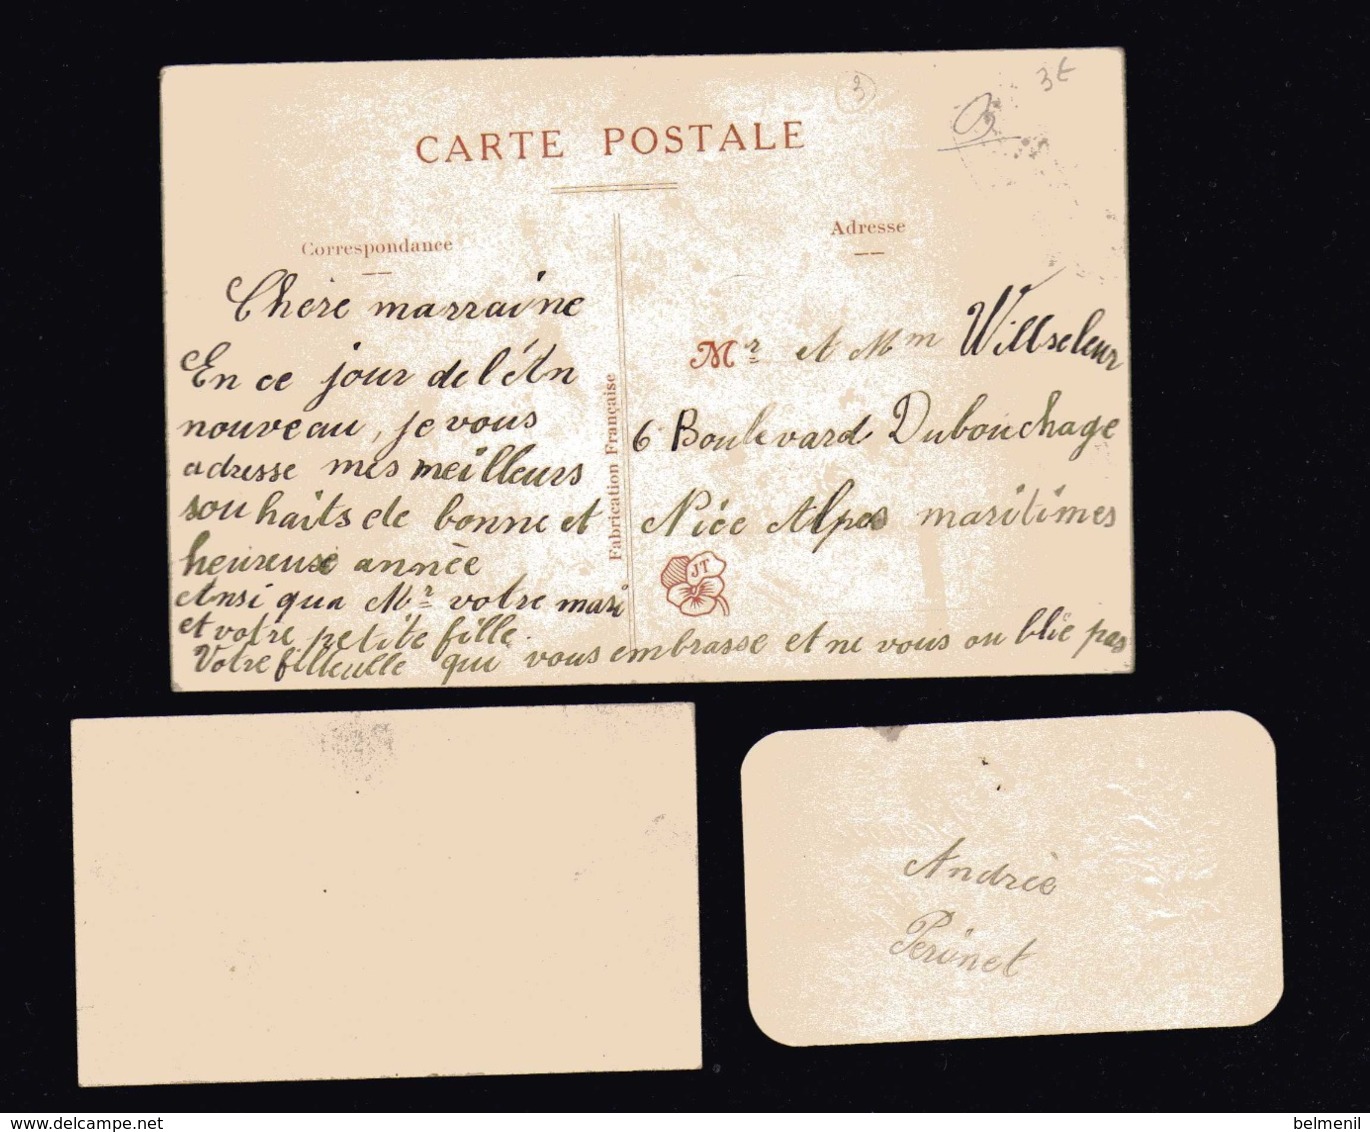 3
3€
CARTE POSTALE
Correspondance
Chère marraine
En ce jour de l'An
nouveau, je vous
adresse mes meilleurs
souhaits de bonne et
heureuse année
Ansi qua Mr votre mari
et votre petite fille.
Votre filleulle qui vous embrasse et ne vous oublie pas
Fabrication Française
Adresse
Mr et Mm Willseleur
6 Boulevard Dubouchage
Nice Alpes maritimes
JT
Andrée
Perinet
www.delcampe.net
belmenil